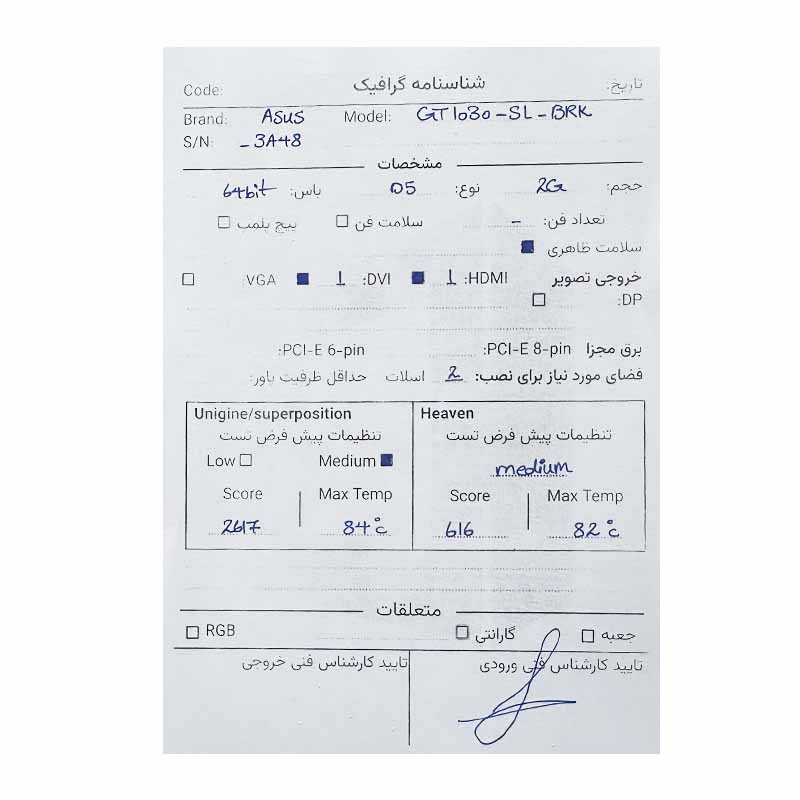 Code: شناسنامه گرافیک تاریخ:
Brand: ASUS Model: GT1030-SL-BRK
S/N: -3A48
مشخصات
حجم: 2G نوع: D5 باس: 64bit
تعداد فن: - سلامت فن پیچ پلمپ
سلامت ظاهری
خروجی تصویر HDMI: 1 DVI: 1 VGA:
DP:
برق مجزا PCI-E 8-pin: PCI-E 6-pin:
فضای مورد نیاز برای نصب: 2 اسلات حداقل ظرفیت پاور:
Unigine/superposition Heaven
تنظیمات پیش فرض تست تنظیمات پیش فرض تست
Low Medium medium
Score Max Temp Score Max Temp
2617 84°c 616 82°c
متعلقات
جعبه گارانتی RGB
تایید کارشناس فنی ورودی تایید کارشناس فنی خروجی